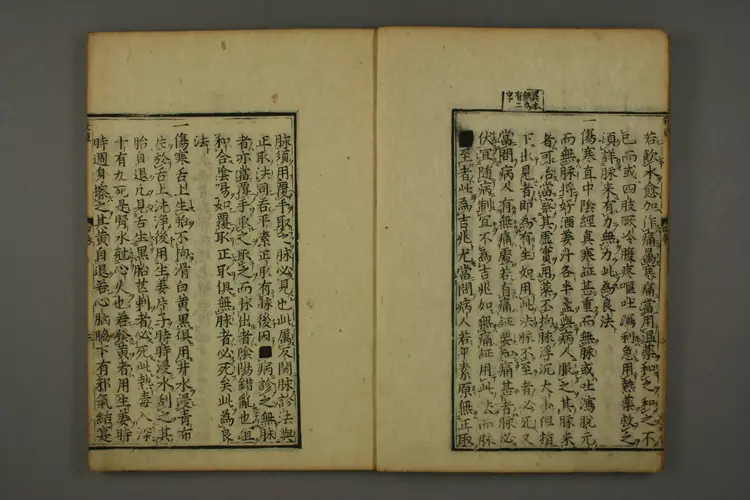 異本
無為
有二
字
若飲水愈加作痛属寒痛當用温藥和之和之不
已而或四肢厥冷腹疼嘔吐瀉利急用熱藥救之
須詳脉来有力無力此為良法
一傷寒直中陰經真寒証甚重而無脉或吐瀉脱元
而無脉將好酒姜汁各半盞與病人服之其脉来
者可治當察其虚實用藥不拘脉浮沉大小但指
下出見者即為有生如用此法脉不至者必死又
當問病人有無痛處若有痛証要知痛甚者脉必
伏宜随病制宜不為吉兆如無痛証用此法而脉
至者此為吉兆尤當問病人若平素原無正取
脉須用覆手取之脉必見也此属反關脉診法與
正取法同若平素正取有脉後因病診之無脉
者亦當覆手取之取之而脉出者陰陽錯亂也宜
和合陰陽如覆取正取俱無脉者必死矣此為良
法
一傷寒舌上生胎不拘滑白黄黒俱用井水浸青布
片於舌上洗淨後用生姜片子時時浸水刮之其
胎自退凡見舌生黒胎芒刺者必死此熱毒入深
十有九死是腎水尅心火也若發黄者用生姜時
時週身擦之其黄自退若心胸脇下有邪氣結宴